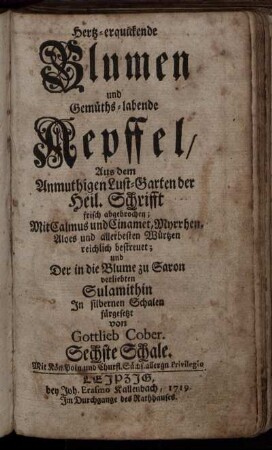 Hertz-erquikende
Blumen
und
Gemüths-labende
Aepffel/
Aus dem
Anmuthigen Lust-Garten der
Heil. Schrifft
frisch abgebrochen;
Mit Calmus und Cinamet, Myrrhen,
Aloes und allerbesten Würtzen
reichlich bestreuet;
und
Der in die Blume zu Saron
verliebten
Sulamithin
In silbernen Schalen
fürgesetzt
von
Gottlieb Cober.
Sechste Schale.
Mit Kön. Poln. und Churfl. Sächs. allergn. Privilegio
LEIPZIG,
bey Joh. Erasmo Kallenbach, 1719.
Im Durchgange des Rathhauses.